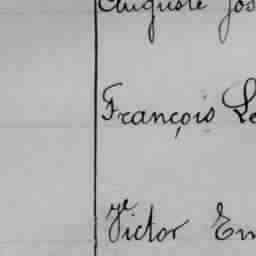 Auguste Jos
François Le
Victor Em